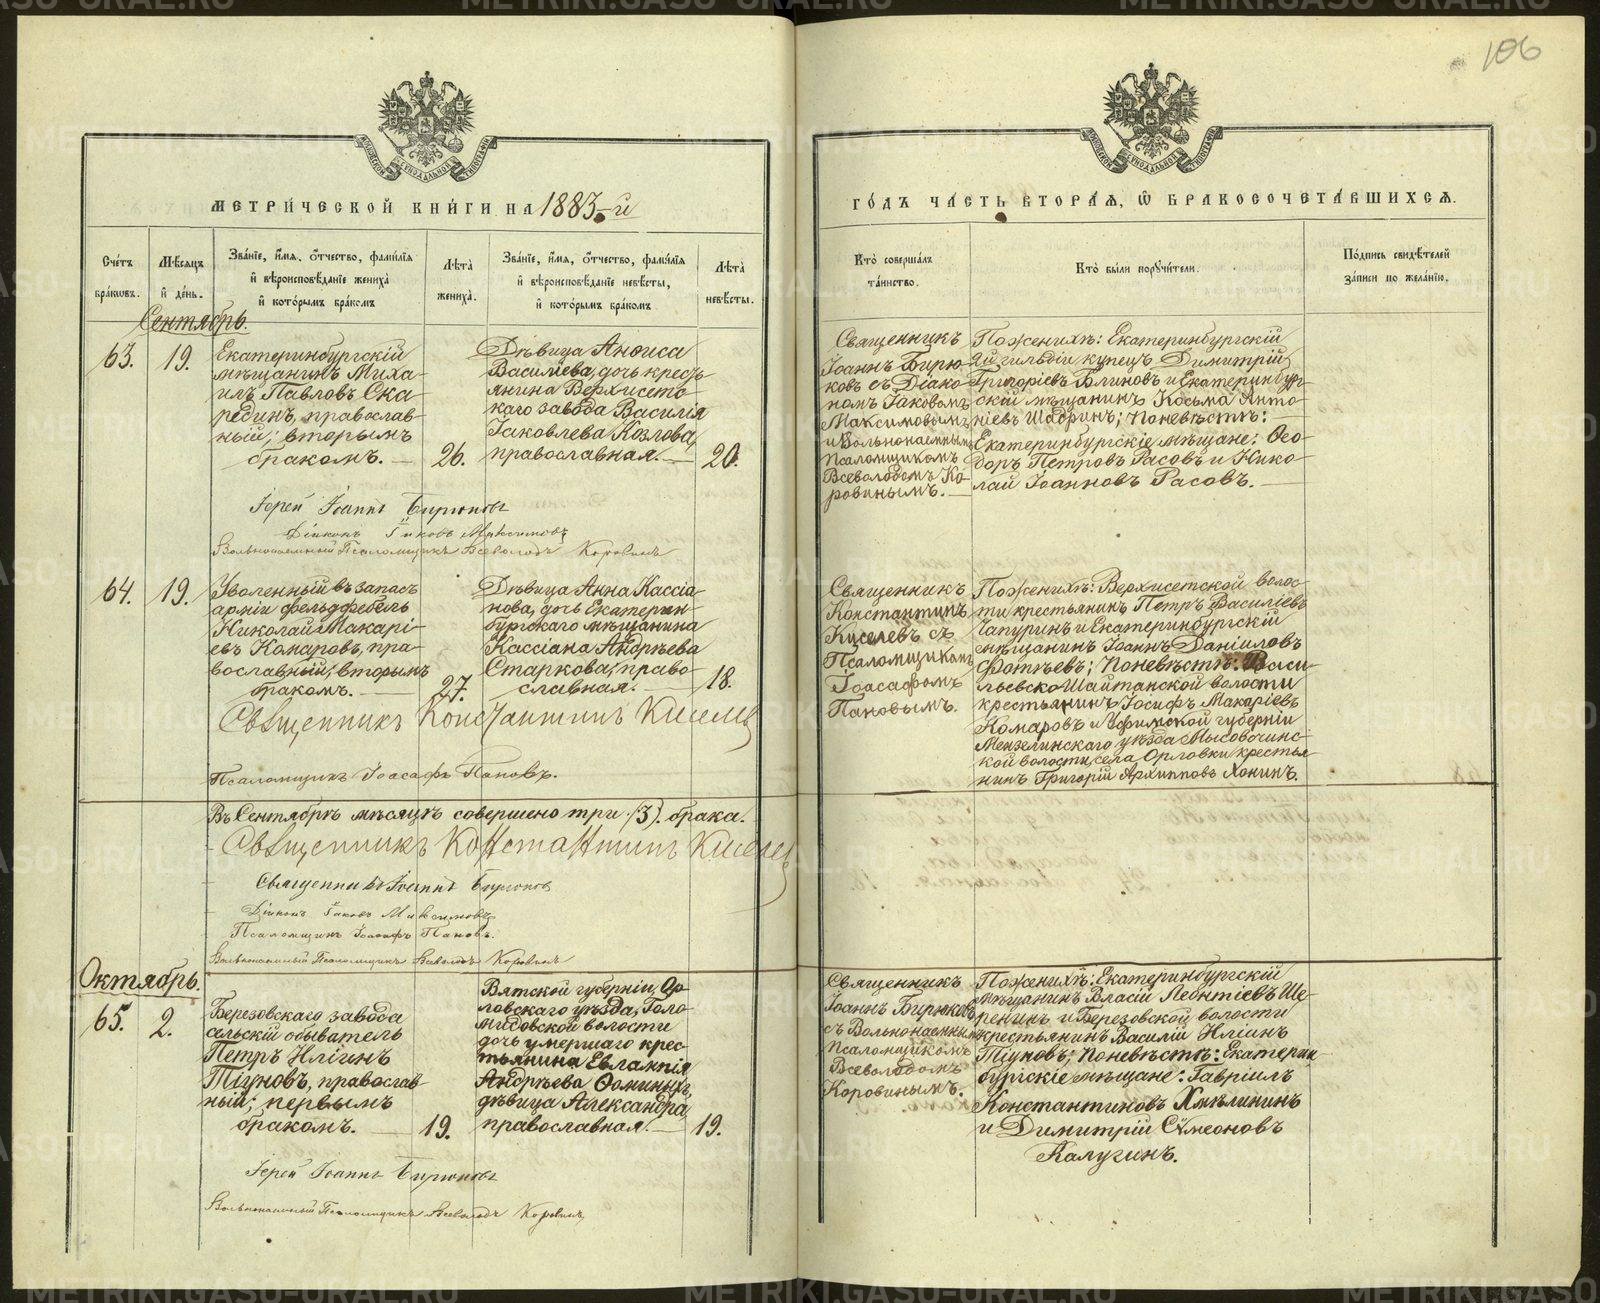 106
МОСКОВСКОЙ СѴНОДАЛЬНОЙ ТИПОГРАФІИ
МОСКОВСКОЙ СѴНОДАЛЬНОЙ ТИПОГРАФІИ
МЕТРИ́ЧЕСКОЙ КНИ́ГИ НА 1883-й
ГО́ДЪ ЧА́СТЬ ВТОРА́Я, Ѿ БРАКОСОЧЕТА́ВШИХСЯ.
Сче́тъ бра́ковъ.
Мѣ́сяцъ и де́нь.
Зва́нїе, и́мя, ѻ́тчество, фами́лїя
и вѣроисповѣ́данїе жениха̀
и кото́рымъ бра́комъ
Лѣ́та жениха̀.
Зва́нїе, и́мя, ѻ́тчество, фами́лїя
и вѣроисповѣ́данїе невѣ́сты,
и кото́рымъ бра́комъ.
Лѣ́та невѣ́сты.
Кто̀ соверша́лъ та́инство.
Кто̀ бы́ли поручи́тели.
По́дпись свидѣ́телей за́писи по жела́нїю.
Сентябрь.
63. 19.
Екатеринбургскій
мѣщанинъ Миха-
илъ Павловъ Ска-
рединъ, православ-
ный; вторымъ
бракомъ. 26.
Дѣвица Анѳиса
Василіева, дочь кресть-
янина Верхисетс-
каго завода Василія
Іаковлева Козлова,
православная. 20.
Священникъ
Іоаннъ Бирю-
ковъ съ Діако-
номъ Іаковомъ
Максимовымъ
и Вольнонаемнымъ
Псаломщикомъ
Всеволодомъ Ко-
ровинымъ.
По женихѣ: Екатеринбургскій
2й гильдіи купецъ Димитрій
Григоріевъ Блиновъ и Екатеринбург-
скій мѣщанинъ Косьма Анто-
ніевъ Шадринъ; по невѣстѣ:
Екатеринбургскіе мѣщане: Ѳео-
доръ Петровъ Расовъ и Нико-
лай Іоанновъ Расовъ.
Іерей Іоаннъ Бирюковъ
Діаконъ Іаковъ Максимовъ
Вольнонаемный Псаломщикъ Всеволодъ Коровинъ
64. 19.
Уволенный въ запасъ
арміи фельдфебель
Николай Макарі-
евъ Комаровъ, пра-
вославный; вторымъ
бракомъ. 27.
Дѣвица Анна Кассіа-
нова, дочь Екатерин-
бургскаго мѣщанина
Кассіана Андрѣева
Старкова, право-
славная. 18.
Священникъ
Константинъ
Киселевъ съ
Псаломщикомъ
Іоасафомъ
Пановымъ.
По женихѣ: Верхисетской волос-
ти крестьянинъ Петръ Василіевъ
Чапуринъ и Екатеринбургскій
мѣщанинъ Іоаннъ Даніиловъ
Фотѣевъ; по невѣстѣ: Васи-
льевско Шайтанской волости
крестьянинъ Іосифъ Макаріевъ
Комаровъ и Уфимской губерніи
Мензелинскаго уѣзда Мысовочинс-
кой волости, села Орловки крестья-
нинъ Григорій Архипповъ Хонинъ.
Священникъ Константинъ Киселевъ
Псаломщикъ Іоасафъ Пановъ.
Въ Сентябрѣ мѣсяцѣ совершено три (3) брака.
Священникъ Константинъ Киселевъ
Священникъ Іоаннъ Бирюковъ
Діаконъ Іаковъ Максимовъ
Псаломщикъ Іоасафъ Пановъ.
Вольнонаемный Псаломщикъ Всеволодъ Коровинъ
Октябрь.
65. 2.
Березовскаго завода
сельскій обыватель
Петръ Иліинъ
Тіуновъ, православ-
ный; первымъ
бракомъ. 19.
Вятской губерніи, Ор-
ловскаго уѣзда, Голо-
мидовской волости
дочь умершаго крес-
тьянина Евлампія
Андрѣева Ѳоминыхъ,
дѣвица Александра,
православная. 19.
Священникъ
Іоаннъ Бирюковъ
съ Вольнонаемнымъ
Псаломщикомъ
Всеволодомъ
Коровинымъ.
По женихѣ: Екатеринбургскій
мѣщанинъ Власій Леонтіевъ Ше-
ренинъ и Березовской волости
крестьянинъ Василій Иліинъ
Тіуновъ; по невѣстѣ: Екатерин-
бургскіе мѣщане: Гавріилъ
Константиновъ Хмѣлининъ
и Димитрій Сѵмеоновъ
Калугинъ.
Іерей Іоаннъ Бирюковъ
Вольнонаемный Псаломщикъ Всеволодъ Коровинъ
METRIKI.GASU-URAL.RU